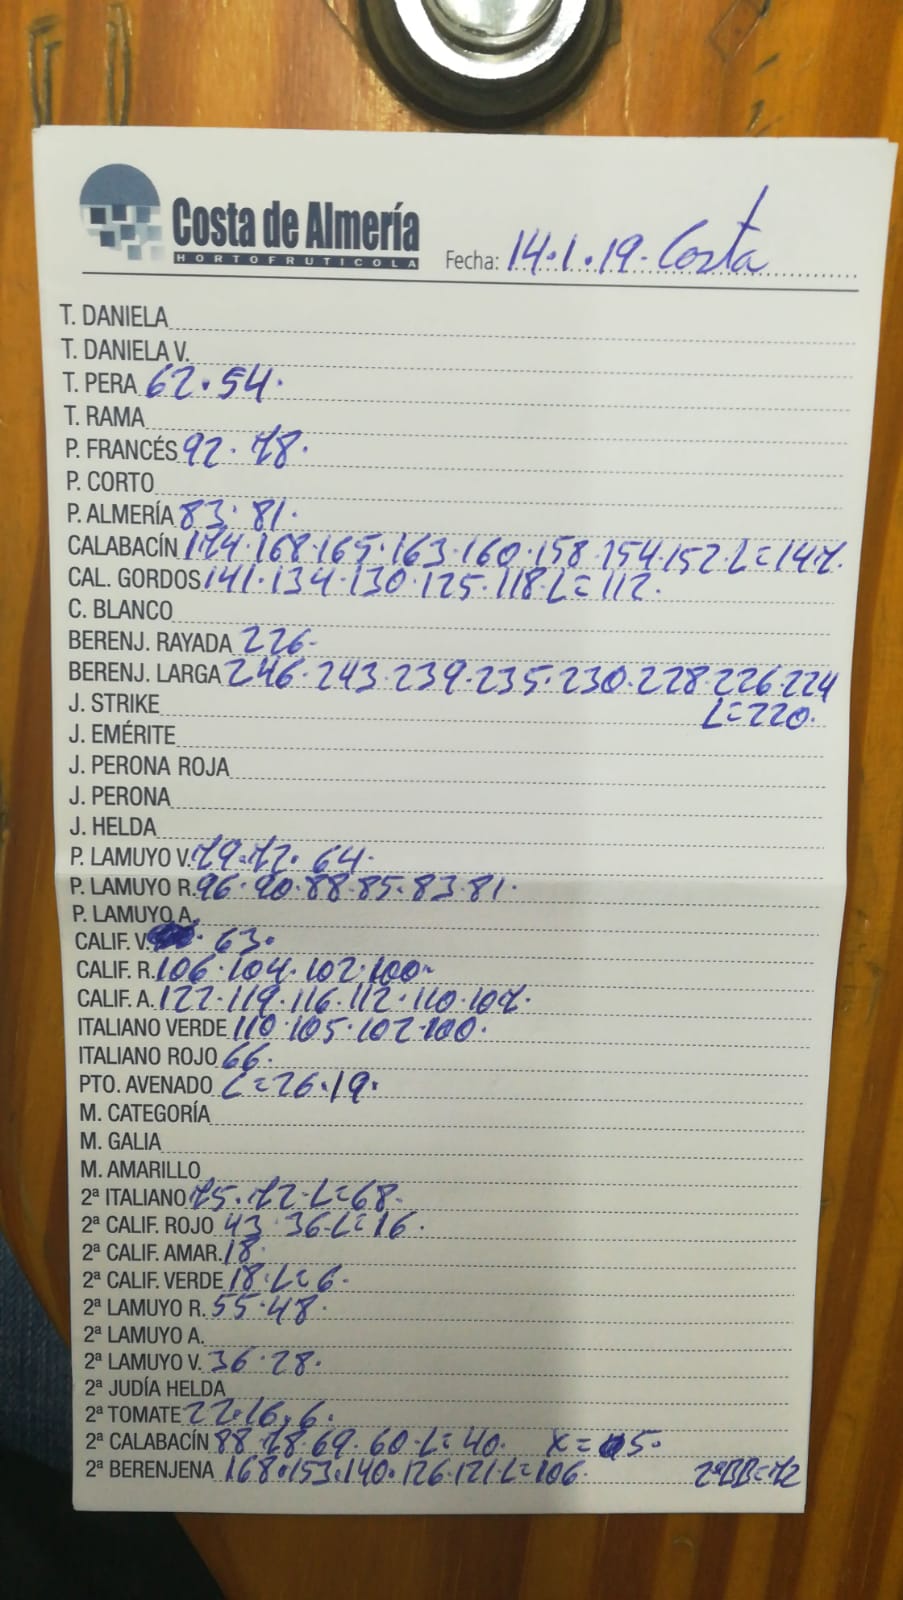 Costa de Almería
HORTOFRUTICOLA
Fecha: 14.1.19. Costa
T. DANIELA
T. DANIELA V.
T. PERA 62.54.
T. RAMA
P. FRANCÉS 92.78.
P. CORTO
P. ALMERÍA 83.81.
CALABACÍN 174.168.165.163.160.158.154.152.L=147.
CAL. GORDOS 141.134.130.125.118.L=112.
C. BLANCO
BERENJ. RAYADA 226.
BERENJ. LARGA 246.243.239.235.230.228.226.224
L=220.
J. STRIKE
J. EMÉRITE
J. PERONA ROJA
J. PERONA
J. HELDA
P. LAMUYO V. 79.72.64.
P. LAMUYO R. 96.90.88.85.83.81.
P. LAMUYO A.
CALIF. V. 63.
CALIF. R. 106.104.102.100.
CALIF. A. 122.119.116.112.110.107.
ITALIANO VERDE 110.105.102.100.
ITALIANO ROJO 66.
PTO. AVENADO L=26.19.
M. CATEGORÍA
M. GALIA
M. AMARILLO
2ª ITALIANO 75.72.L=68.
2ª CALIF. ROJO 43.36.L=16.
2ª CALIF. AMAR. 18.
2ª CALIF. VERDE 18.L=6.
2ª LAMUYO R. 55.48.
2ª LAMUYO A.
2ª LAMUYO V. 36.28.
2ª JUDÍA HELDA
2ª TOMATE 22.16.6.
2ª CALABACÍN 88.78.69.60.L=40. X=5.
2ª BERENJENA 168.153.140.126.121.L=106. 2ªBB=72